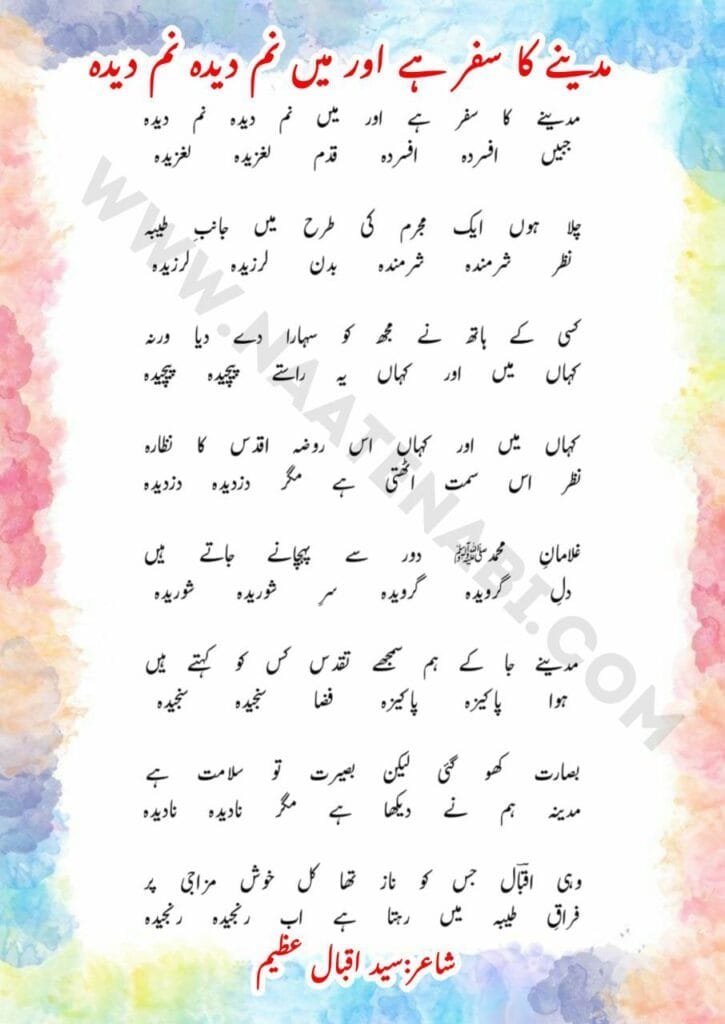 مدینے کا سفر ہے اور میں نم دیدہ نم دیدہ
مدینے کا سفر ہے اور میں نم دیدہ نم دیدہ
جبیں افسردہ افسردہ قدم لغزیدہ لغزیدہ
چلا ہوں ایک مجرم کی طرح میں جانبِ طیبہ
نظر شرمندہ شرمندہ بدن لرزیدہ لرزیدہ
کسی کے ہاتھ نے مجھ کو سہارا دے دیا ورنہ
کہاں میں اور کہاں یہ راستے پیچیدہ پیچیدہ
کہاں میں اور کہاں اس روضہ اقدس کا نظارہ
نظر اس سمت اٹھتی ہے مگر دزدیدہ دزدیدہ
غلامانِ محمدﷺ دور سے پہچانے جاتے ہیں
دلِ گرویدہ گرویدہ سرِ شوریدہ شوریدہ
مدینے جا کے ہم سمجھے تقدس کس کو کہتے ہیں
ہوا پاکیزہ پاکیزہ فضا سنجیدہ سنجیدہ
بصارت کھو گئی لیکن بصیرت تو سلامت ہے
مدینہ ہم نے دیکھا ہے مگر نادیدہ نادیدہ
وہی اقبالؔ جس کو ناز تھا کل خوش مزاجی پر
فراقِ طیبہ میں رہتا ہے اب رنجیدہ رنجیدہ
شاعر:سید اقبال عظیم
WWW.NAATENABI.COM